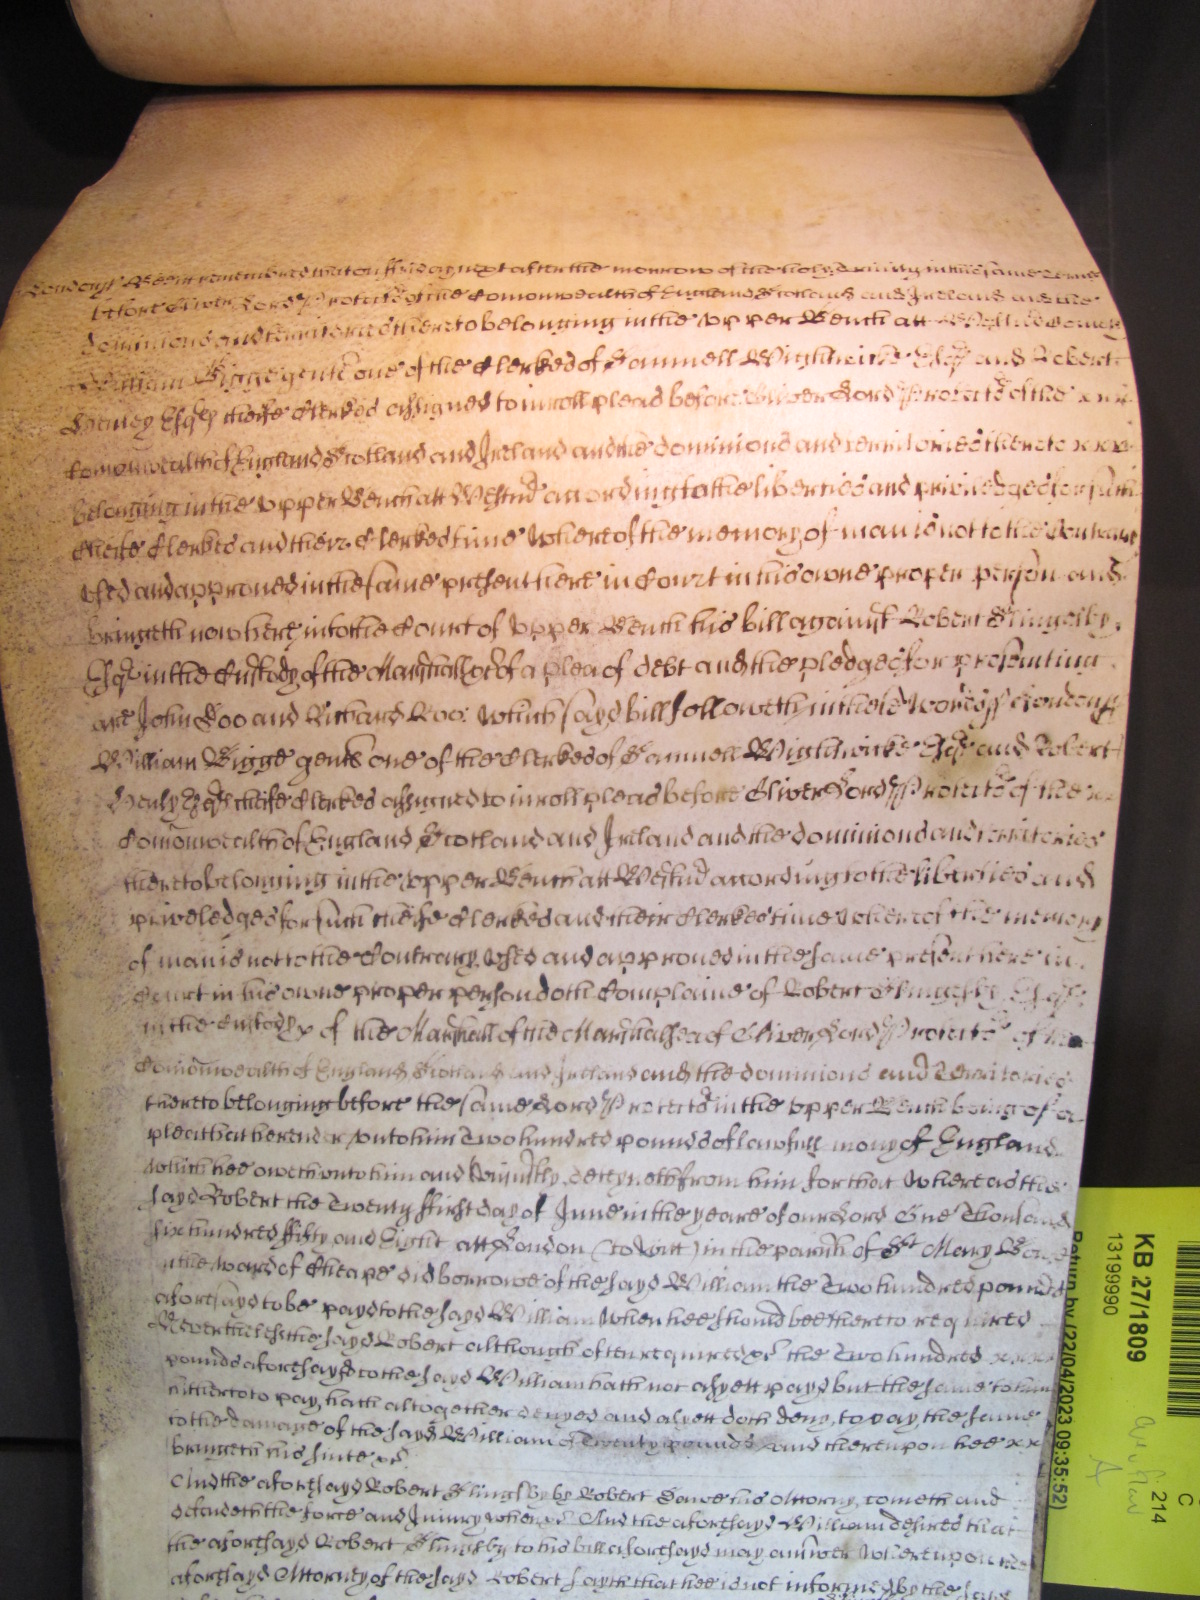 London ss Bee it remembred that on ffriday next after the morrow of the holy Trinity in this same Terme
before Oliver Lord Protector of the Comonwealth of England Scotland and Ireland and the
dominions and territories thereto belonging in the Upper Bench att Westm
William Bigge gent one of the Clerkes of Samuell Wightwicke Esqr and Robert
Henley Esqr cheife Clerkes assigned to inroll pleas before Oliver Lord Protector of the x x x
Comonwealth of England Scotland and Ireland and the dominions and territories thereto x x x
belonging in the Upper Bench att Westmr according to the liberties and priviledges for such
Cheife Clerkes and their Clerkes time whereof the memory of man is not to the Contrary
used and approued in the same present here in Court in his owne proper person and
bringeth now here into the Court of Upper Bench his bill against Robert Slingesby
Esqr in the Custody of the Marshall &c of a plea of debt and the pledges for presenting
are John Doo and Richard Roo: Which sayd bill followeth in these words ss London ss
William Bigge gent one of the Clerkes of Samuell Wightwicke Esqr and Robert
Henly Esqr cheife Clerkes assigned to inroll pleas before Oliver Lord Protector of the x x
Comonwealth of England Scotland and Ireland and the dominions and territories
thereto belonging in the Upper Bench att Westmr according to the liberties and
priveledges for such cheife Clerkes and their Clerkes time whereof the memory
of man is not to the Contrary used and approued in the same present here in
Court in his owne proper person doth Complaine of Robert Slingesby Esqr
in the Custody of the Marshall of the Marshalsea of Oliver Lord Protector of the
Comonwealth of England Scotland and Ireland and the dominions and Territories
thereto belonging before the same Lord Protector in the Upper Bench being of a
plea that he render unto him Two hundred pounds of lawfull mony of England
which hee oweth unto him and Uniustly deteyneth from him for that whereas the
sayd Robert the Twenty ffirst day of June in the yeare of our Lord One Thousand
six hundred fifty and Eight att London (to Witt) in the parish of St Mary Bow
in the ward of Cheape did borrowe of the sayd William the Two hundred pounds
aforesayd to be payd to the sayd William when hee should bee thereto required
Neverthelesse the sayd Robert although often required &c the Two hundred x x x x
pounds aforesayd to the sayd William hath not as yett payd but the same to him
hitherto to pay, hath altogether denyed and as yett doth deny, to pay the same
to the damage of the sayd William of Twenty pounds And thereupon hee x x
bringeth his suite &c
And the aforesayd Robert Slingsby by Robert his Attorny, cometh and
defendeth the force and Iniury when &c And the aforesayd William desires that
the aforesayd Robert Slingsby to his bill aforesayd may answer Whereupon the
aforesayd Attorney of the sayd Robert sayth that hee is not informed by the sayd
KB 27/1809
13199990
Return by (22/04/2023 09:35:52)
214
C
A